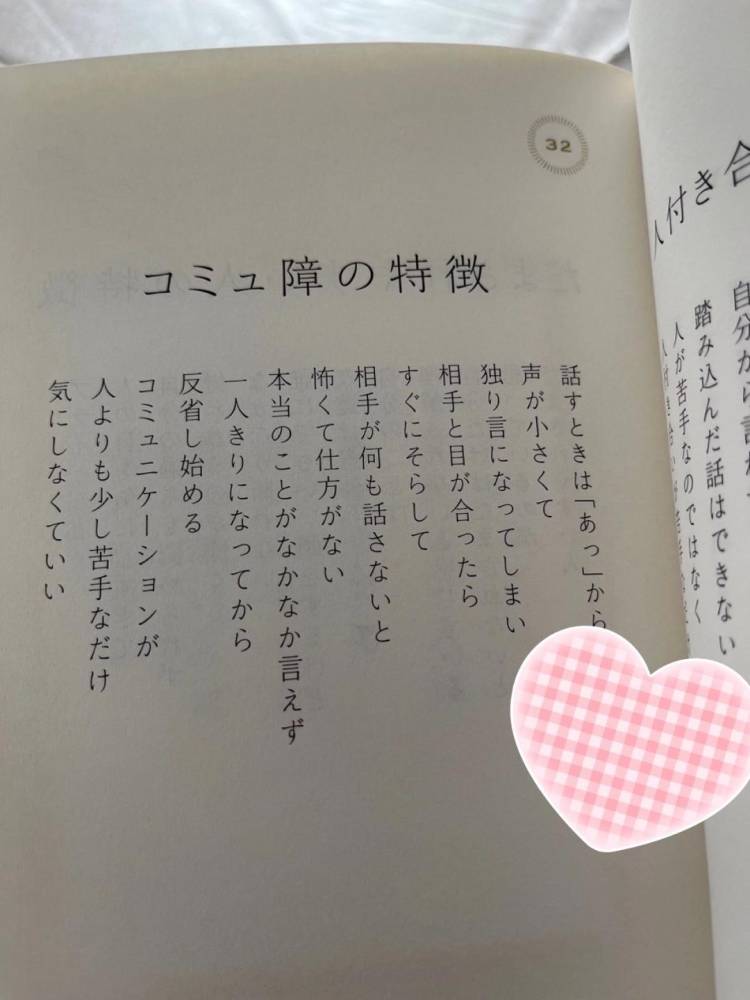 32
コミュ障の特徴
話すときは「あっ」から
声が小さくて
独り言になってしまい
相手と目が合ったら
すぐにそらして
相手が何も話さないと
怖くて仕方がない
本当のことがなかなか言えず
一人きりになってから
反省し始める
コミュニケーションが
人よりも少し苦手なだけ
気にしなくていい
人付き合
自分から話が
踏み込んだ話はできない
人が苦手なのではなく